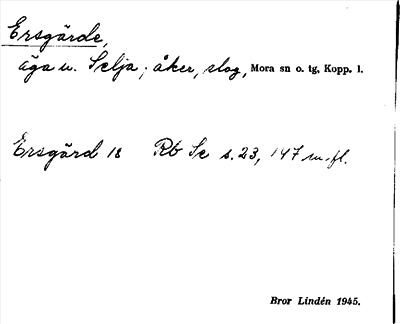 Ersgärde,
äga u. Selja; åker, slog, Mora sn o. tg, Kopp. l.
Ersgärd 18 Rb Se s. 23, 147 m. fl.
Bror Lindén 1945.